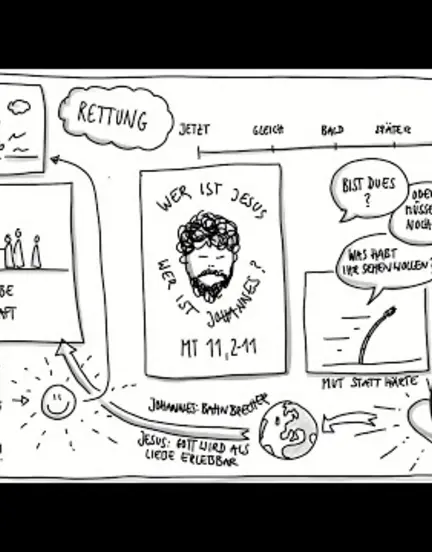 RETTUNG
JETZT GLEICH BALD SPÄTER
WER IST JESUS
WER IST JOHANNES?
MT 11,2-11
BIST DU ES
?
ODER
MÜSSE
NOCH
WAS HABT
IHR SEHEN WOLLEN?
MUT STATT HÄRTE
BE
AFT
JOHANNES: BAHNBRECHER
JESUS: GOTT WIRD ALS
LIEBE ERLEBBAR